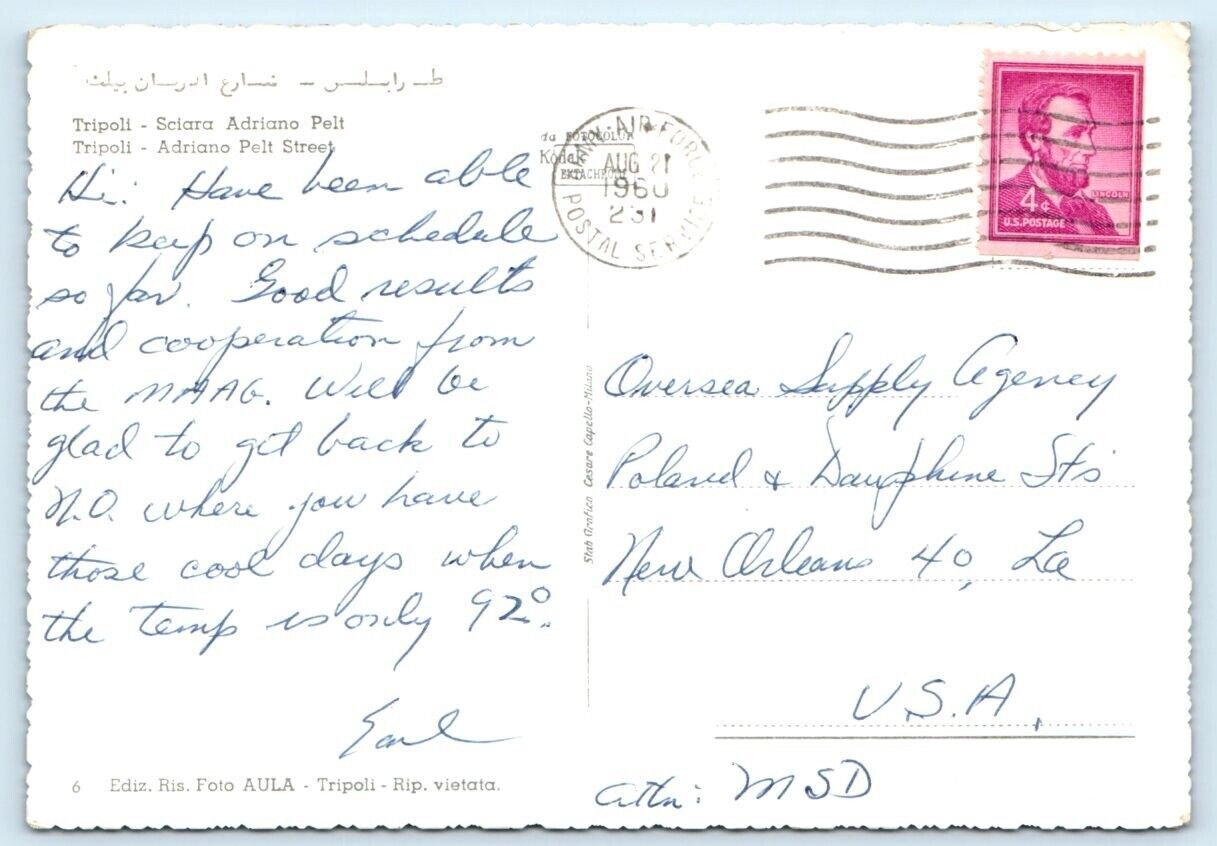 طـرابـلـس - شـارع ادريـان بيلت
Tripoli - Sciara Adriano Pelt
Tripoli - Adriano Pelt Street
Hi: Have been able
to keep on schedule
so far. Good results
and cooperation from
the MAAG. Will be
glad to get back to
N.O. where you have
those cool days when
the temp is only 92°.
Earl
6 Ediz. Ris. Foto AULA - Tripoli - Rip. vietata.
da FOTOCOLOR
Kodak
EKTACHROME
ARMY-AIR FORCE
AUG 21
1960
231
POSTAL SERVICE
LINCOLN
4¢
U.S. POSTAGE
Stab Grafico Cesare Capello-Milano
Oversea Supply Agency
Poland & Dauphine Sts
New Orleans 40, La
U.S.A.
Attn: MSD